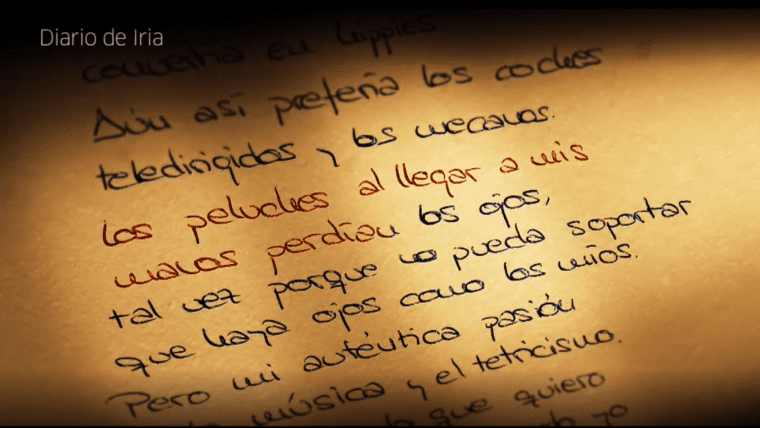 Diario de Iria
convertía en hippies
Aún así prefería los coches
teledirigidos y los mecanos.
Los peluches al llegar a mis
manos perdían los ojos,
tal vez porque no pueda soportar
que haya ojos como los míos.
Pero mi auténtica pasión
la música y el tetricismo.
lo que quiero
yo